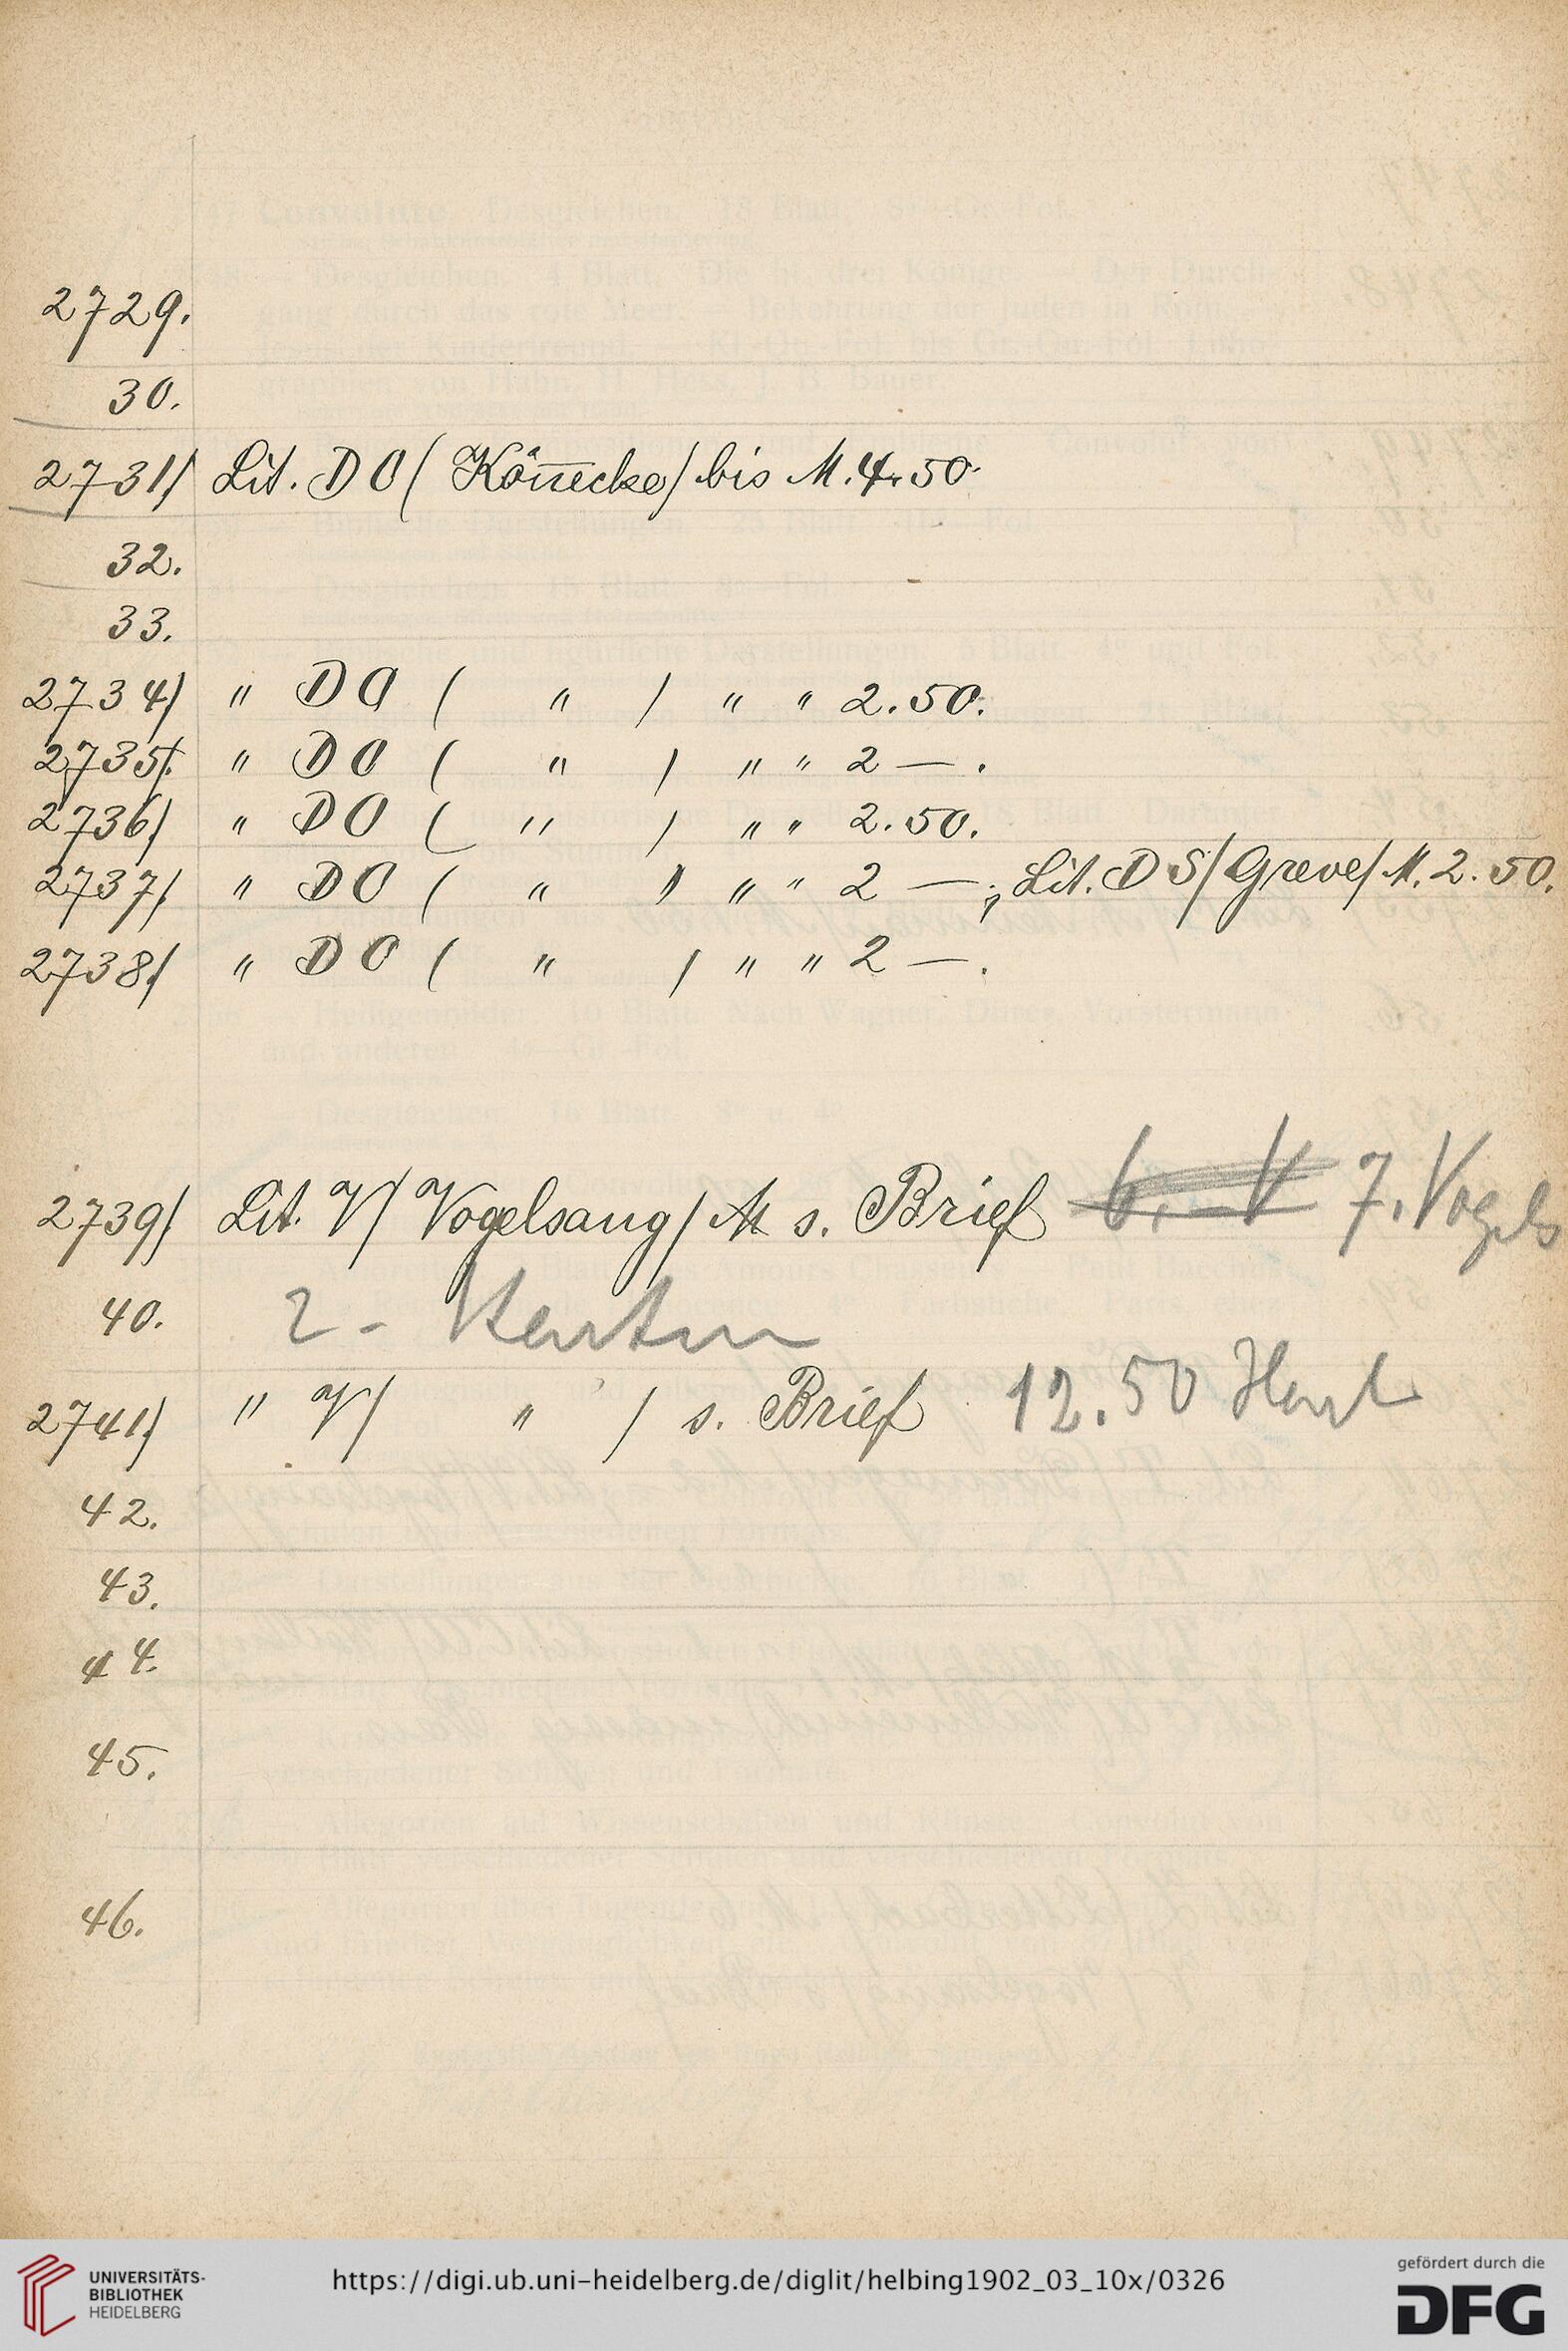 2729.
30.
2731/ Lit. DO (Kön̄ecke/ bis M. 4.50.
32.
33.
2734/ " DO ( " / " " 2.50.
2735/. " DO ( " / " " 2 — .
2736/ " DO ( " / " " 2.50.
2737/ " DO ( " / " " 2 — ; Lit. DS/Greve/ M. 2.50.
2738/ " DO ( " / " " 2 — .
2739/ Lit. V/ Vogelsang/ M s. Brief 6. – V 7. Vogels
40. 2 -
2741/ " V/ " / s. Brief 12.50
42.
43.
44.
45.
46.
UNIVERSITÄTS-
BIBLIOTHEK
HEIDELBERG
https://digi.ub.uni-heidelberg.de/diglit/helbing1902_03_10x/0326
gefördert durch die
DFG